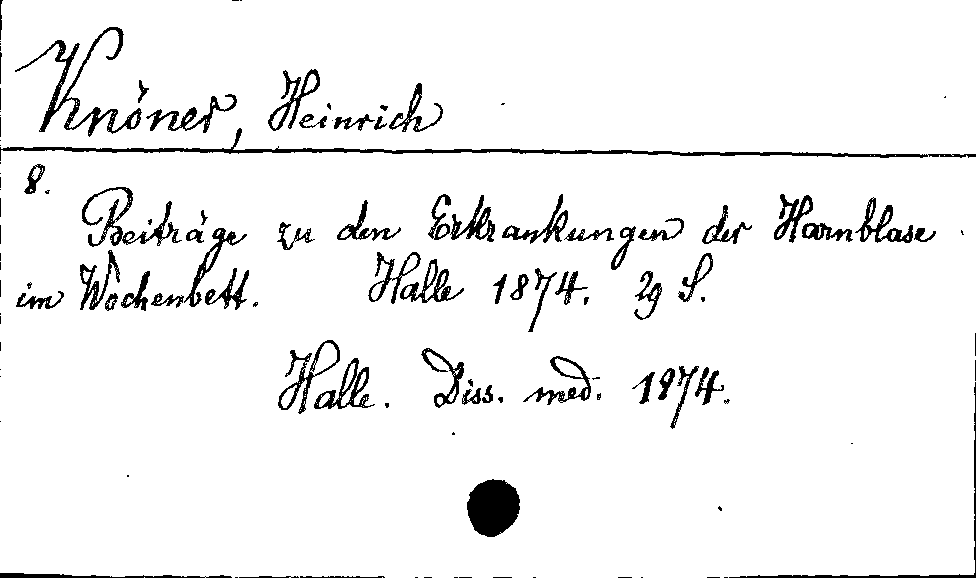 Knöner, Heinrich
8.
Beiträge zu den Erkrankungen der Harnblase
im Wochenbett. Halle 1874. 29 S.
Halle. Diss. med. 1874.